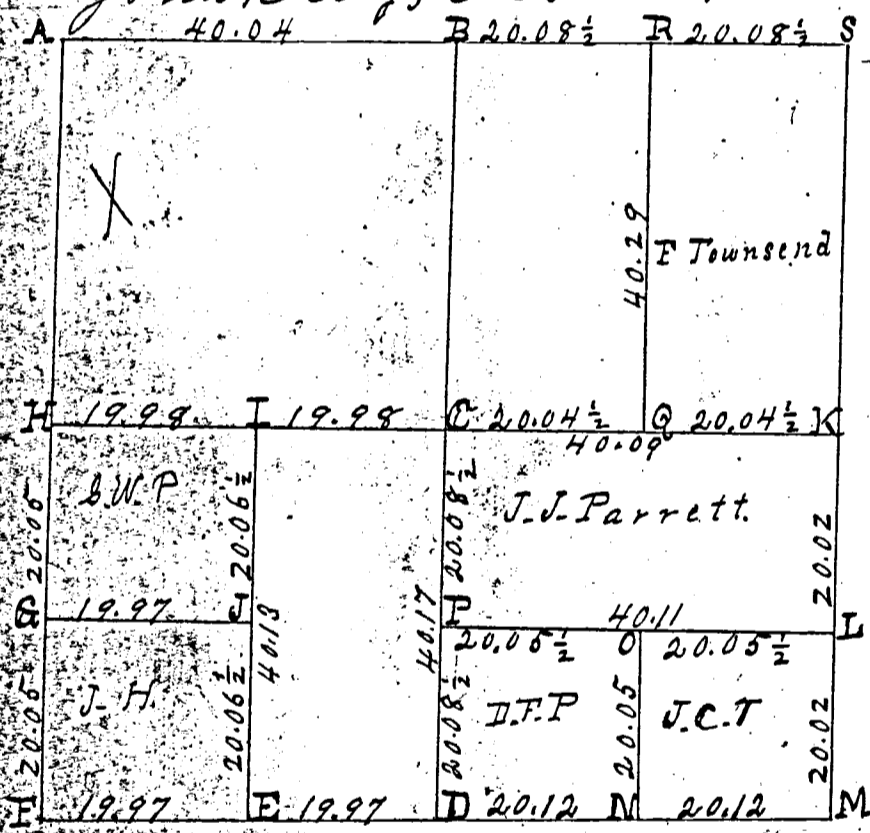 A 40.04 B 20.08½ R 20.08½ S
X
40.29
F Townsend
H 19.98 I 19.98 C 20.04½ Q 20.04½ K
40.09
20.05
S.W.P
20.06½
20.08½
J.J. Parrett.
20.02
40.13
40.17
G 19.97 J P 40.11 L
20.05½ O 20.05½
20.05
J. H.
20.06½
20.08½
D.F.P
20.05
J.C.T
20.02
F 19.97 E 19.97 D 20.12 N 20.12 M